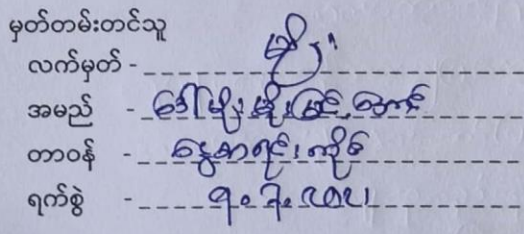 မှတ်တမ်းတင်သူ
လက်မှတ် -
အမည် - ဒေါ်မျိုးမျိုးမြင့်အောင်
တာဝန် - ငွေစာရင်းကိုင်
ရက်စွဲ - ၅.၃.၂၀၂၂